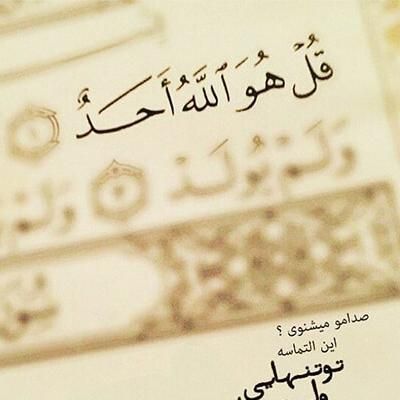 قُلْ هُوَ ٱللَّهُ أَحَدٌ ١
وَلَمْ يُولَدْ ٣ وَلَمْ
صدامو میشنوی ؟
این التماسه
توتنهایی